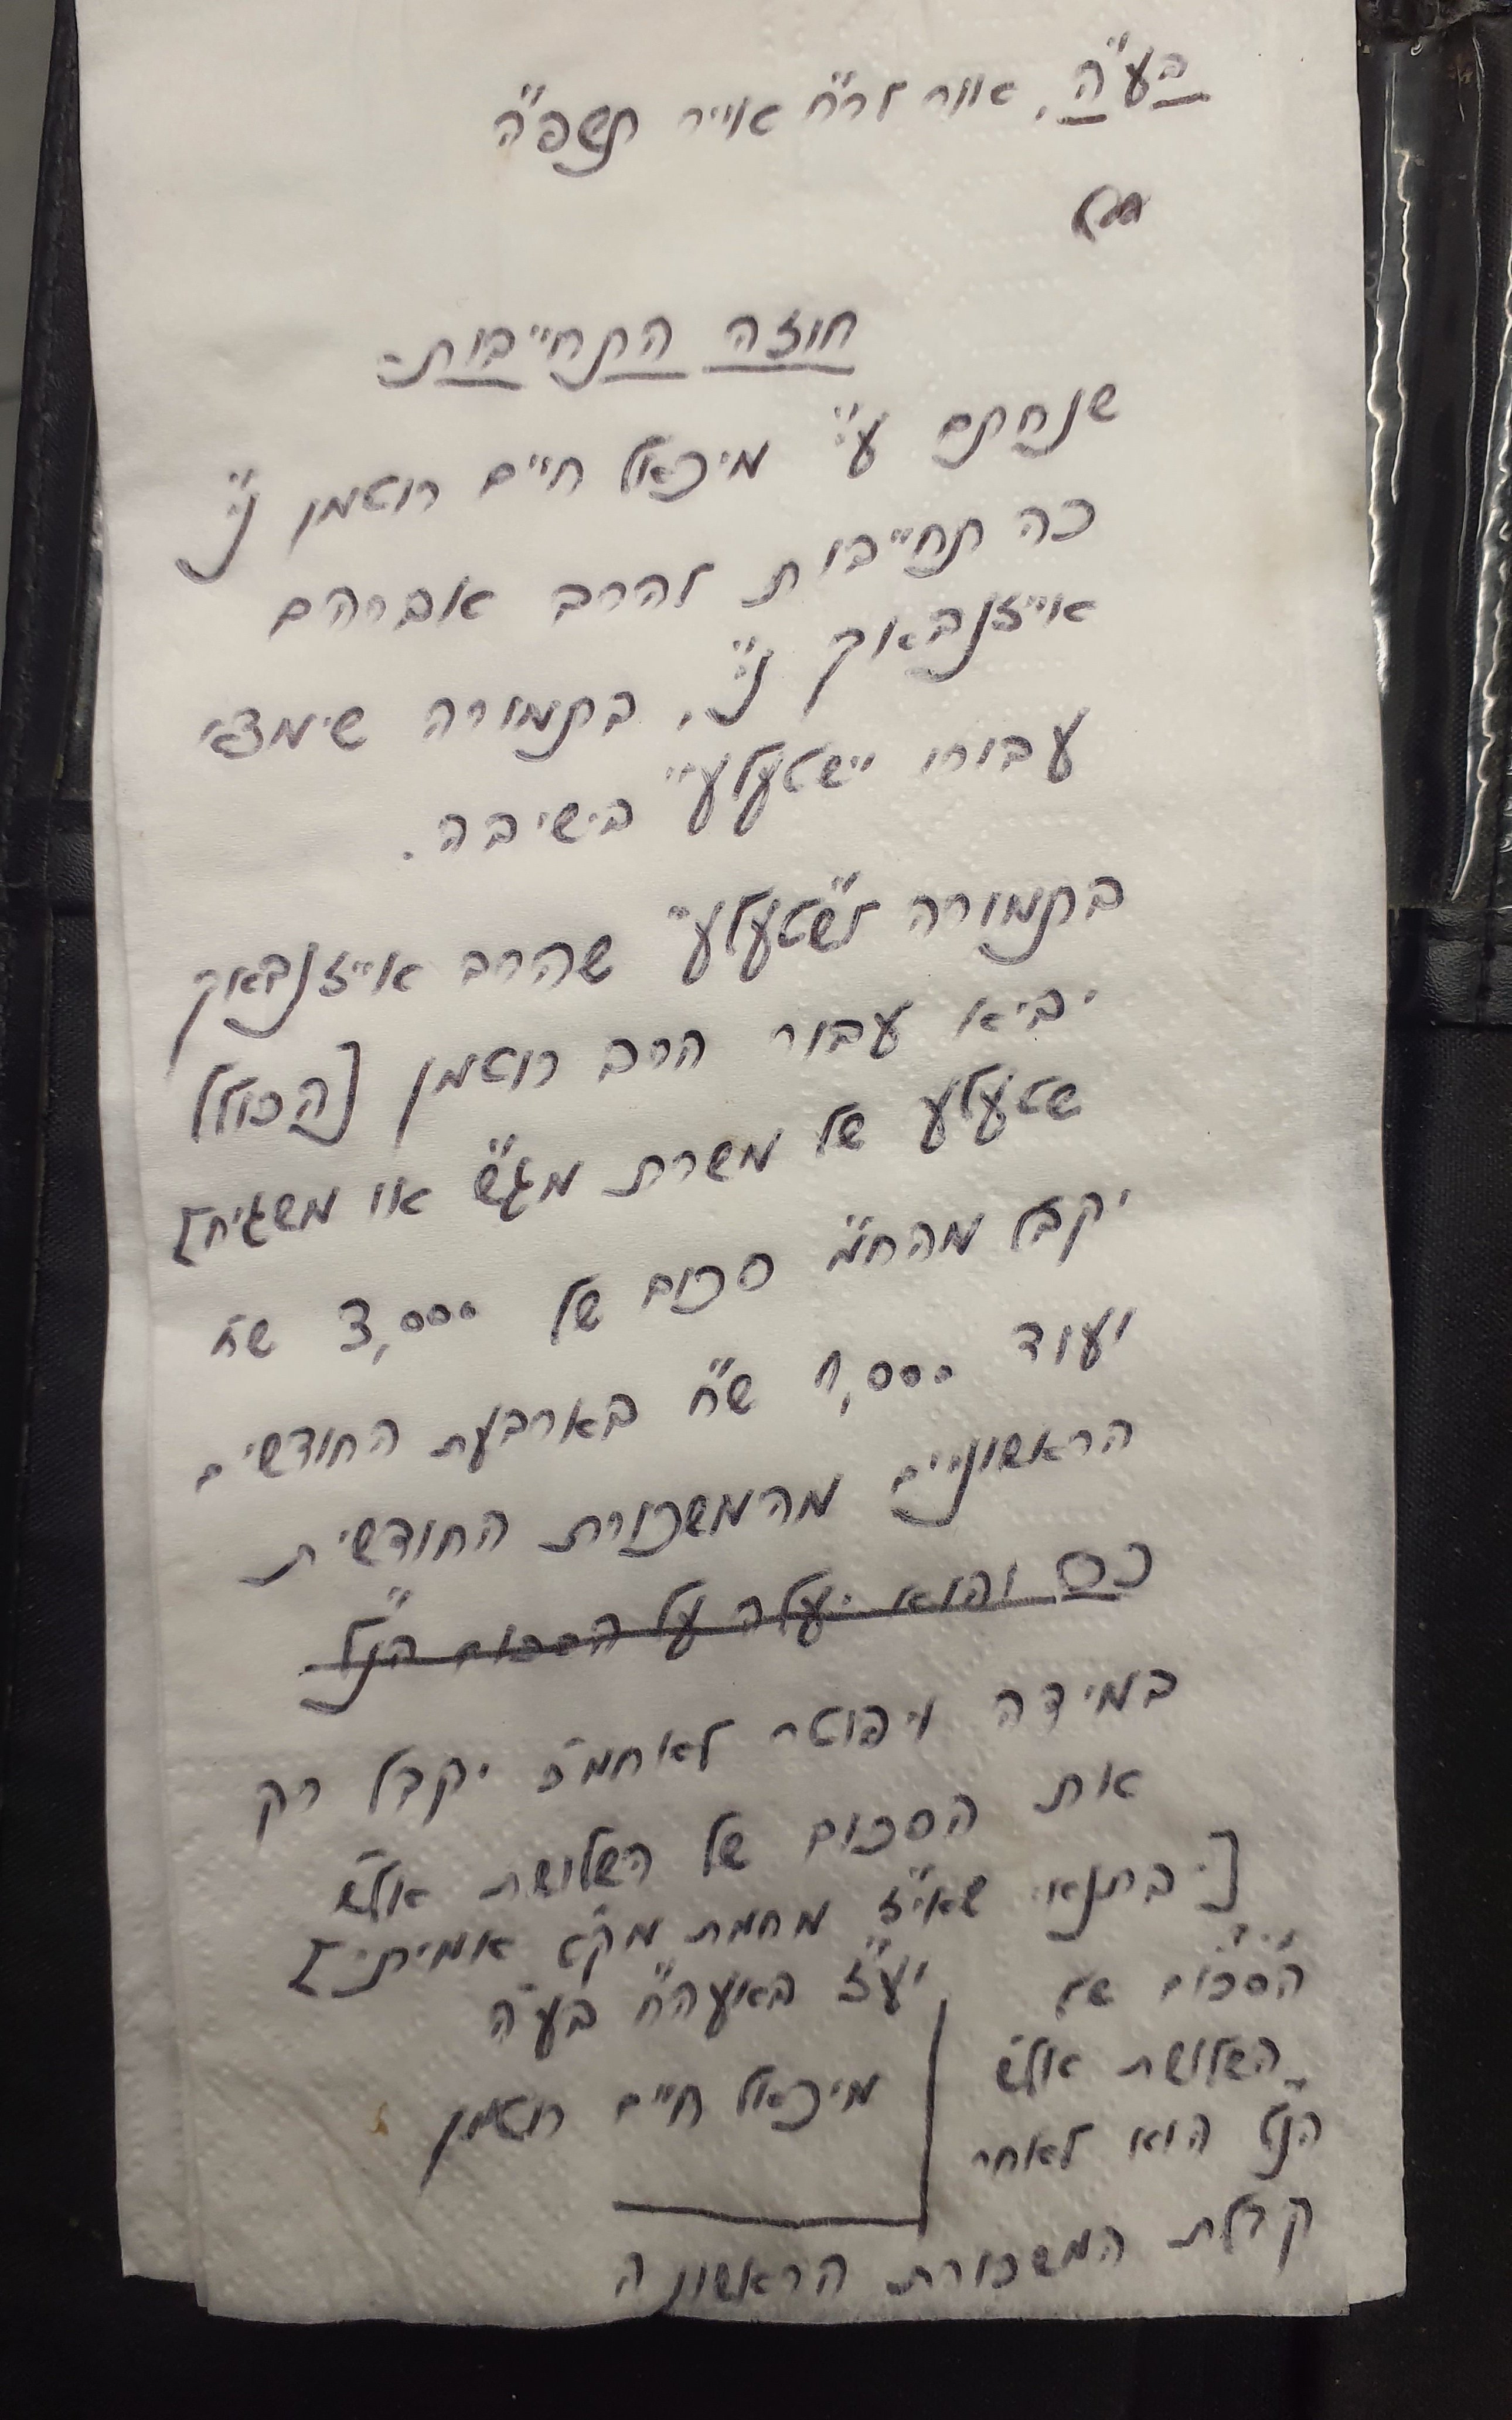 בע"ה, אור לר"ח אייר תשפ"ה
חוזה התחייבות-
שנחתם ע"י מיכאל חיים רוטמן ני"
כה תחייבות להרב אברהם
אייזנבאך ני", בתמורה שימצא
עבורו "שטעלע" בישיבה.
בתמורה ל"שטעלע" שהרב אייזנבאך
יביא עבור הרב רוטמן [הכולל
שטעלע של משרת מגש" או משגיח]
יקבל מהח"מ סכום של 3,000 ש"ח
ועוד 1,000 ש"ח בארבעת החודשים
הראשוניים מהמשכורת החודשית
כם והוא יעלה על הסכום הנ"ל
במידה ויפוטר לאחמ"כ יקבל רק
את הסכום של השלושת אלש
[בתנאי שאי"ז מחמת מק"א אמיתי]
הסכום של
השלושת אלש
הנ"ל הוא לאחר
קבלת המשכורת הראשונה
וע"ז באעה"ח בע"ה
מיכאל חיים רוטמן